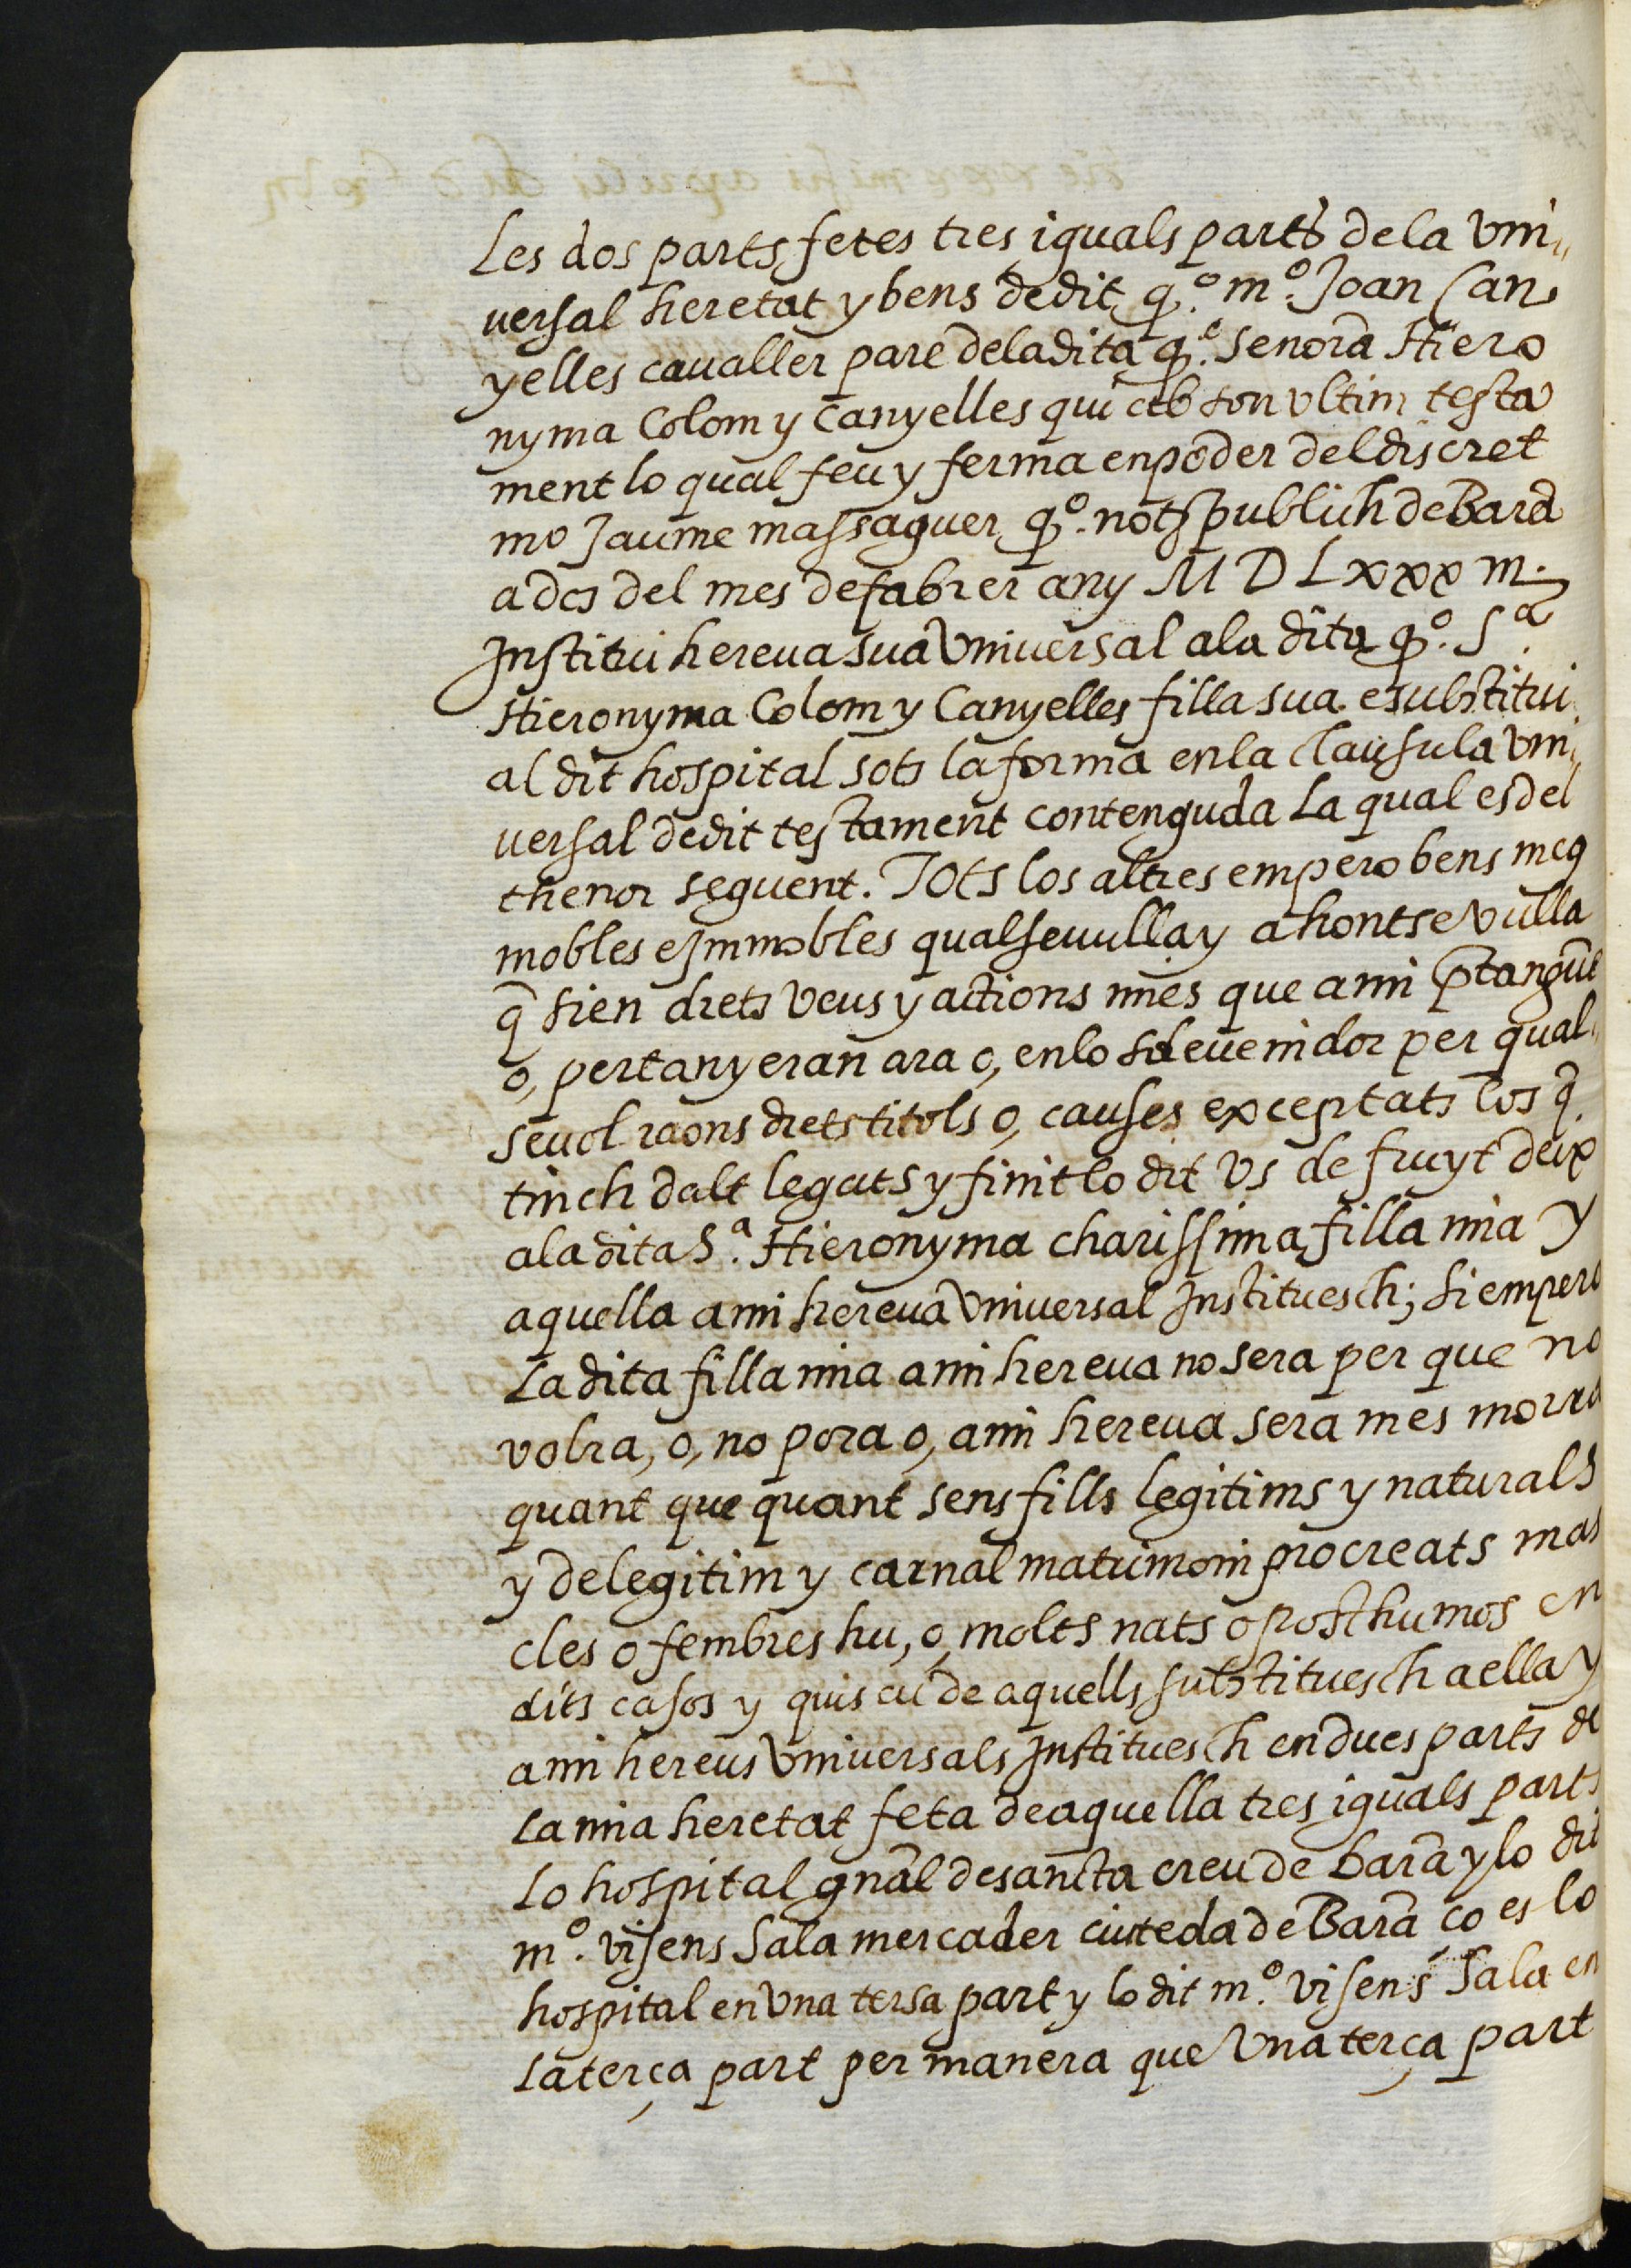 Les dos parts fetes tres iguals parts de la vni,,
uersal heretat y bens dedit q.º m.º Joan Can,
yelles caualler pare deladita q.ª Senora Hiero
nyma Colom y Canyelles qui ab son vltim testa
ment lo qual feu y ferma enpoder deldiscret
mº Jaume massaguer q.º. not publich de Barã
a dos del mes defabrer any M D Lxxx
Institui hereua sua Vniuersal ala dita q.º. Sª.
Hieronyma Colom y Canyelles filla sua e substitui
al dit hospital sots la forma enla clausula vni,
uersal dedit testament contenguda La qual esdel
thenor seguent. Tots los altres empero bens meq
mobles e Immobles qualseuulla y ahontse vulla
q̃ sien drets veus y actions mies que a mi
o, pertanyeran ara o, enlo sdeuenidor per qual,,
seuol raons drets titols o, causes exceptats los q̃
tinch dalt legats y finit lo dit Vs de fruyt deix
ala dita S.ª Hieronyma charissima filla mia y
aquella a mi hereua Vniuersal Instituesch; si empero
La dita filla mia a mi hereua no sera per que no
volra, o, no pora o, a mi hereua sera mes morra
quant que quant sens fills legitims y naturals
y de legitim y carnal matrimoni procreats mas
cles o fembres hu, o, molts nats o posthumos en
dits casos y quiscu de aquells substituesch a ella y
a mi hereus Vniuersals Instituesch en dues parts de
La mia heretat feta de aquella tres iguals parts
Lo hospital gnãl de sancta creu de Barã y lo dit
m.º visens Sala mercader ciuteda de Barã ço es lo
hospital en Vna tersa part y lo dit m.º visens Sala en
La terça part per manera que Vna terça part